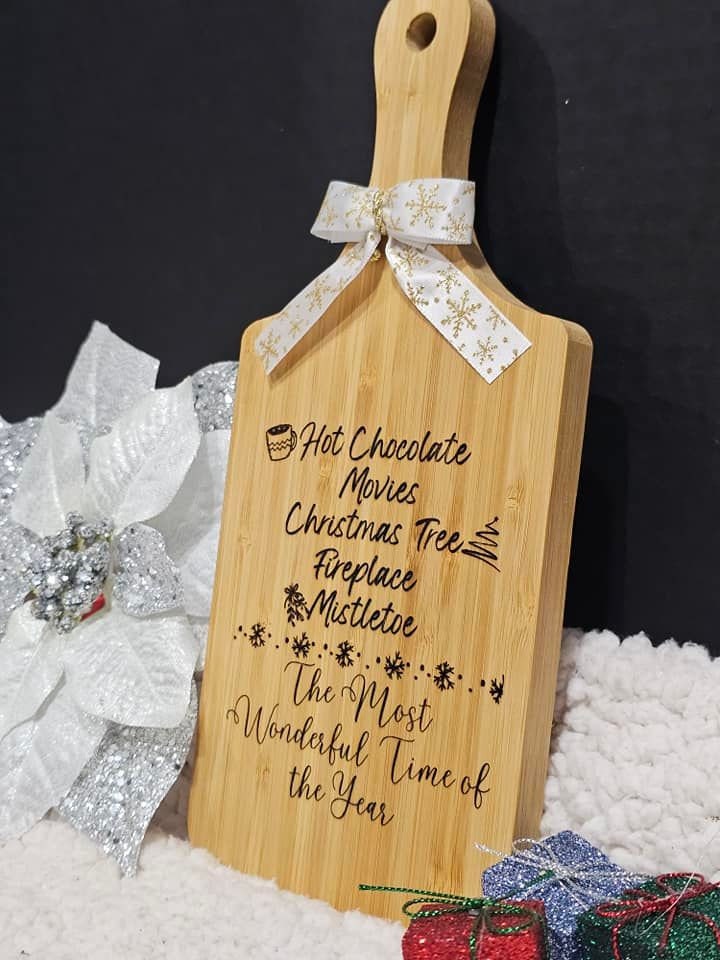 Hot Chocolate
Movies
Christmas Tree
Fireplace
Mistletoe
The Most
Wonderful Time of
the Year